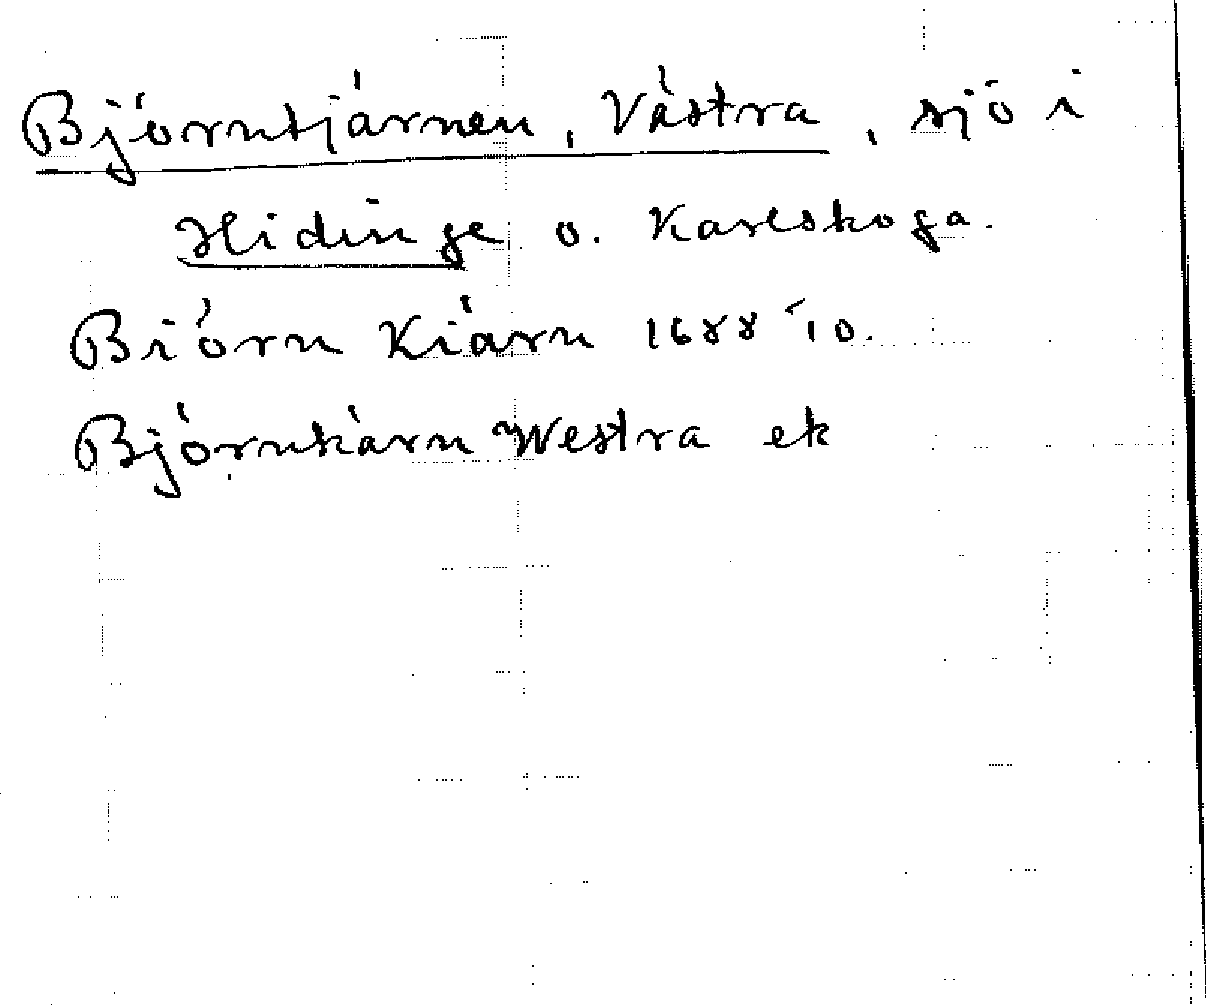 Björntjärnen, Västra, sjö i
Hidinge o. Karlskoga.
Biörn Kiärn 1688 '10.
Björnkärn Westra ek